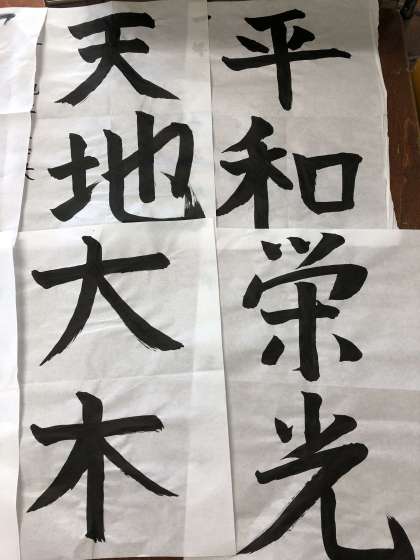 平和栄光
天地大木